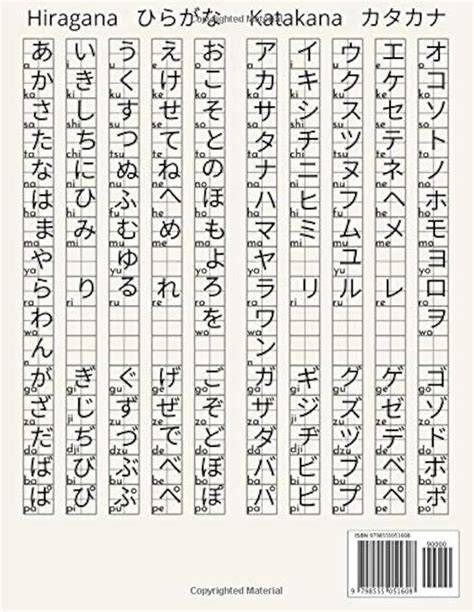 Copyrighted Material
Hiragana ひらがな Katakana カタカナ
あ い う え お ア イ ウ エ オ
a i u e o a i u e o
か き く け こ カ キ ク ケ コ
ka ki ku ke ko ka ki ku ke ko
さ し す せ そ サ シ ス セ ソ
sa shi su se so sa shi su se so
た ち つ て と タ チ ツ テ ト
ta chi tsu te to ta chi tsu te to
な に ぬ ね の ナ ニ ヌ ネ ノ
na ni nu ne no na ni nu ne no
は ひ ふ へ ほ ハ ヒ フ ヘ ホ
ha hi fu he ho ha hi fu he ho
ま み む め も マ ミ ム メ モ
ma mi mu me mo ma mi mu me mo
や ゆ よ ヤ ユ ヨ
ya yu yo ya yu yo
ら り る れ ろ ラ リ ル レ ロ
ra ri ru re ro ra ri ru re ro
わ を ワ ヲ
wa wo wa wo
ん ン
n n
が ぎ ぐ げ ご ガ ギ グ ゲ ゴ
ga gi gu ge go ga gi gu ge go
ざ じ ず ぜ ぞ ザ ジ ズ ゼ ゾ
za ji zu ze zo za ji zu ze zo
だ ぢ づ で ど ダ ヂ ヅ デ ド
da dji dzu de do da dji dzu de do
ば び ぶ べ ぼ バ ビ ブ ベ ボ
ba bi bu be bo ba bi bu be bo
ぱ ぴ ぷ ぺ ぽ パ ピ プ ペ ポ
pa pi pu pe po pa pi pu pe po
ISBN 9798555051608
90000
9 798555 051608
Copyrighted Material